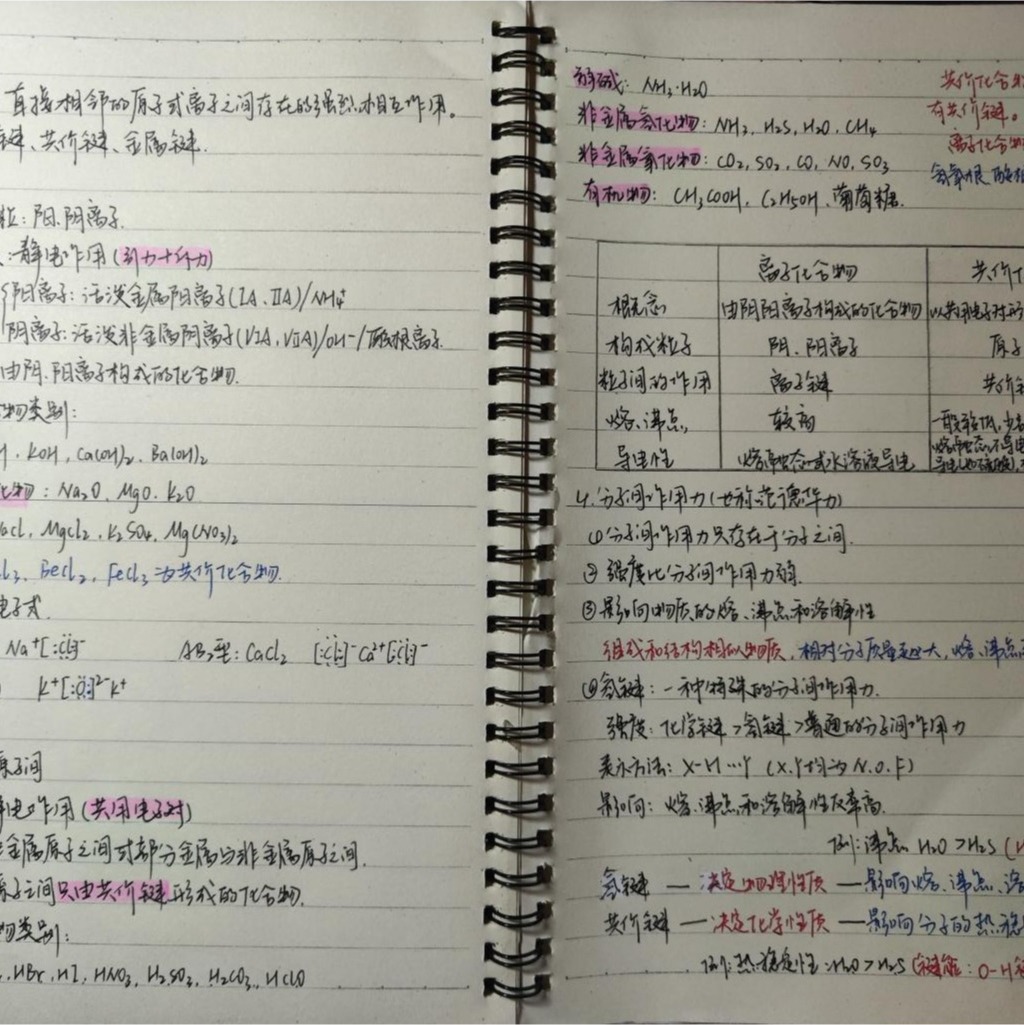 直接相邻的原子或离子之间存在的强烈相互作用。
键、共价键、金属键.
粒：阳.阴离子.
：静电作用(引力+斥力)
阳离子：活泼金属阳离子(IA、IIA)/NH₄⁺
阴离子：活泼非金属阴离子(VIA,VIIA)/OH⁻/酸根离子.
由阴.阳离子构成的化合物.
物类别：
H. KOH, Ca(OH)₂. Ba(OH)₂
化物：Na₂O、MgO. K₂O
aCl、MgCl₂. K₂SO₄. Mg(NO₃)₂
Cl₃、BeCl₂, FeCl₃为共价化合物.
电子式.
Na⁺[:C̈l:]⁻ AB₂型：CaCl₂ [:C̈l:]⁻Ca²⁺[:C̈l:]⁻
K⁺[:Ö:]²⁻K⁺
原子间
电作用(共用电子对)
金属原子之间或部分金属与非金属原子之间.
原子之间只由共价键形成的化合物.
物类别：
、HBr、HI、HNO₃、H₂SO₃、H₂CO₃、HClO
弱碱：NH₃·H₂O
非金属氢化物：NH₃、H₂S、H₂O、CH₄
非金属氧化物：CO₂, SO₂, CO, NO, SO₃
有机物：CH₃COOH、C₂H₅OH、葡萄糖.
共价化合物
有共价键。
离子化合物
氢氧根 酸根
离子化合物 共价化
概念 由阴阳离子构成的化合物 以共用电子对形
构成粒子 阴、阳离子 原子
粒子间的作用 离子键 共价键
熔、沸点 较高 一般较低，少
导电性 熔融态或水溶液导电 熔融态不导电
4.分子间作用力(也称范德华力)
①分子间作用力只存在于分子之间.
②强度比分子间作用力弱.
③影响物质的熔、沸点和溶解性
组成和结构相似物质，相对分子质量越大，熔、沸点
④氢键：一种特殊的分子间作用力.
强度：化学键>氢键>普通的分子间作用力
表示方法：X-H…Y (X.Y均为N.O.F)
影响：熔、沸点和溶解性反常高.
例：沸点 H₂O>H₂S (
氢键 — 决定物理性质 — 影响熔、沸点、溶
共价键 — 决定化学性质 — 影响分子的热稳
例：热稳定性：H₂O>H₂S (键能：O-H